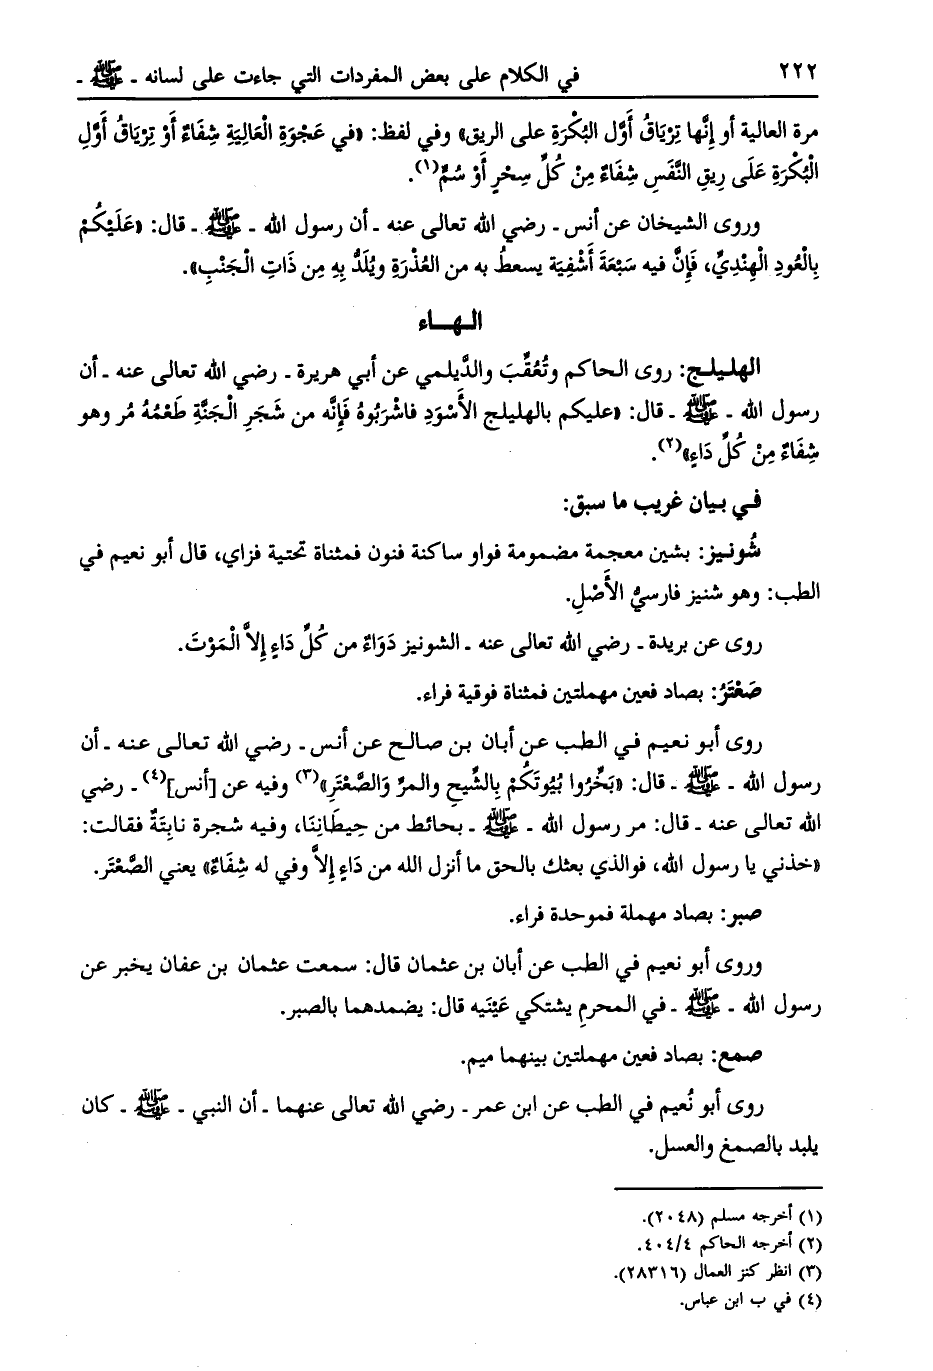 ٢٢٢ في الكلام على بعض المفردات التي جاءت على لسانه ـ ﷺ ـ
مرة العالية أو إِنَّها تِرْيَاقُ أَوَّل البُكْرَةِ على الريق» وفي لفظ: «في عَجْوَةِ الْعَالِيَةِ شِفَاءٌ أَوْ تِرْيَاقُ أَوَّلِ
الْبُكْرَةِ عَلَى رِيقِ النَّفَسِ شِفَاءٌ مِنْ كُلِّ سِحْرٍ أَوْ سُمٍّ»(١).
وروى الشيخان عن أنس ـ رضي الله تعالى عنه ـ أن رسول الله ـ ﷺ ـ قال: «عَلَيْكُمْ
بِالْعُودِ الْهِنْدِيِّ، فَإِنَّ فيه سَبْعَةَ أَشْفِيَة يسعطُ به من العُذْرَةِ ويُلَدُّ بِهِ مِن ذَاتِ الْجَنْبِ».
الـهـــاء
الهليلـج: روى الحاكم وتُعُقِّبَ والدَّيلمي عن أبي هريرة ـ رضي الله تعالى عنه ـ أن
رسول الله ـ ﷺ ـ قال: «عليكم بالهليلج الأَسْوَدِ فاشْرَبُوهُ فَإِنَّه من شَجَرِ الْجَنَّةِ طَعْمُهُ مُر وهو
شِفَاءٌ مِنْ كُلِّ دَاءٍ»(٢).
فـي بيان غريب ما سبق:
شُونـيز: بشين معجمة مضمومة فواو ساكنة فنون فمثناة تحتية فزاي، قال أبو نعيم في
الطب: وهو شنيز فارسيُّ الأَصْلِ.
روى عن بريدة ـ رضي الله تعالى عنه ـ الشونيز دَوَاءٌ من كُلِّ دَاءٍ إِلاَّ الْمَوْتَ.
صَعْتَرُ: بصاد فعين مهملتين فمثناة فوقية فراء.
روى أبو نعيم في الطب عن أبان بن صالح عن أنس ـ رضي الله تعالى عنه ـ أن
رسول الله ـ ﷺ ـ قال: «بَخِّرُوا بُيُوتَكُمْ بِالشِّيحِ والمرِّ وَالصَّعْتَرِ»(٣) وفيه عن [أنس](٤) ـ رضي
الله تعالى عنه ـ قال: مر رسول الله ـ ﷺ ـ بحائط من حِيطَانِنَا، وفيه شجرة نابِتَةٌ فقالت:
«خذني يا رسول الله، فوالذي بعثك بالحق ما أنزل الله من دَاءٍ إِلاَّ وفي له شِفَاءٌ» يعني الصَّعْتَر.
صبر: بصاد مهملة فموحدة فراء.
وروى أبو نعيم في الطب عن أبان بن عثمان قال: سمعت عثمان بن عفان يخبر عن
رسول الله ـ ﷺ ـ في المحرمِ يشتكي عَيْنَيه قال: يضمدهما بالصبر.
صمع: بصاد فعين مهملتين بينهما ميم.
روى أبو نُعيم في الطب عن ابن عمر ـ رضي الله تعالى عنهما ـ أن النبي ـ ﷺ ـ كان
يلبد بالصمغ والعسل.
(١) أخرجه مسلم (٢٠٤٨).
(٢) أخرجه الحاكم ٤٠٤/٤.
(٣) انظر كنز العمال (٢٨٣١٦).
(٤) في ب ابن عباس.